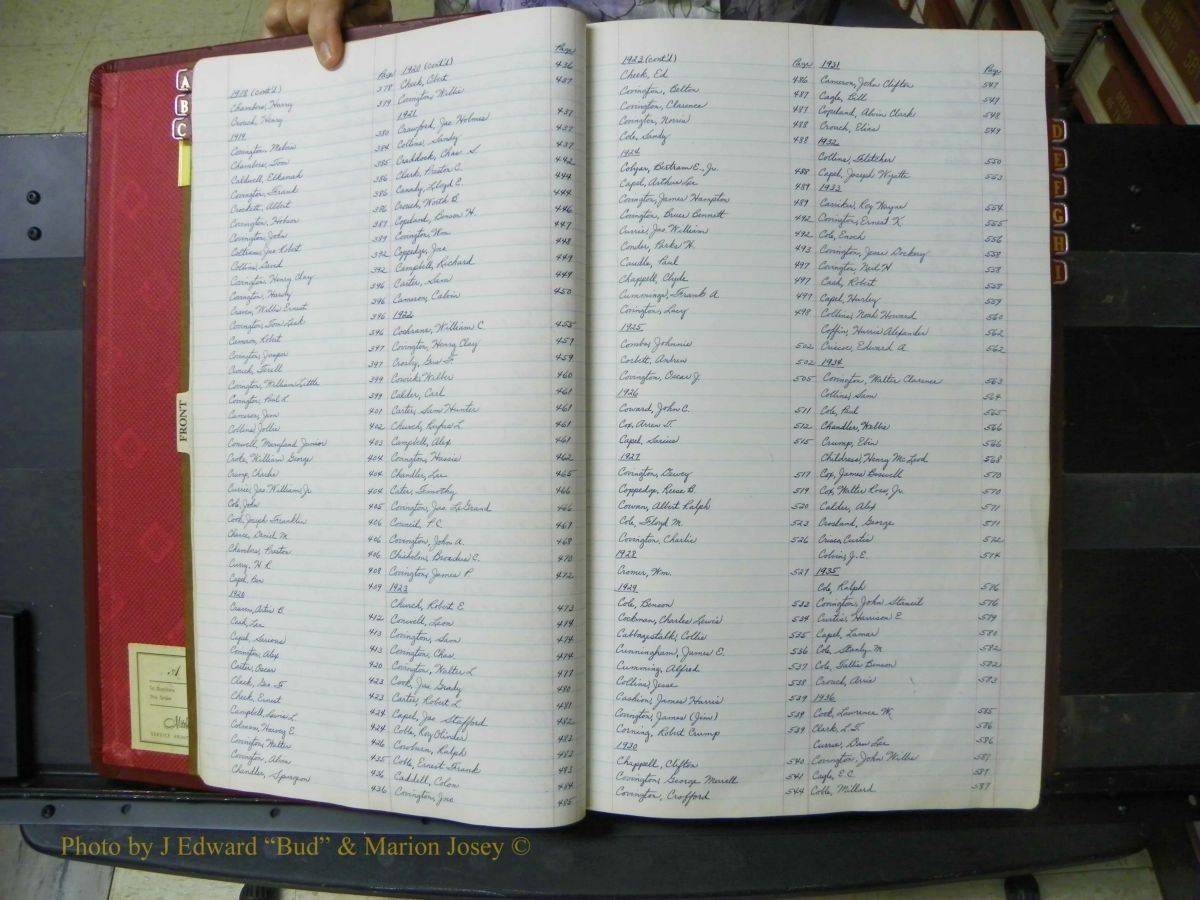 1918 (cont'd)
Page
Chambers, Harry 378
Crouch, Henry 379
1919
Covington, Melvin 380
Chambers, Tom 384
Caldwell, Elkanah 385
Covington, Frank 386
Crockett, Albert 386
Covington, Hobson 386
Covington, John 387
Coltrane, Jas Robert 389
Collins, David 392
Covington, Henry Clay 392
Covington, Hardy 396
Craven, Willis Ernest 396
Covington, Tom Leak 396
Cameron, Robert 396
Covington, Jasper 397
Crouch, Terrell 397
Covington, William Little 399
Covington, Paul L. 399
Cameron, Jim 401
Collins, Jollie 402
Conwell, Maryland Junior 403
Crote, William George 404
Crump, Charlie 404
Currie, Jas William Jr. 404
Cole, John 405
Cook, Joseph Franklin 406
Chance, David M. 406
Chambers, Preston 406
Curry, N. R. 408
Capel, Ben 409
1920
Craven, Artis B.
Cash, Lee 412
Capel, Serious 413
Covington, Alex 413
Carter, Oscar 420
Clark, Geo. F. 423
Cheek, Ernest 423
Campbell, Lewis L. 424
Coleman, Harvey E. 424
Covington, Walter 426
Covington, Alvin 435
Chandler, Spurgeon 436
436
1920 (cont'd)
Page
Cheek, Obert 436
Covington, Willie 437
1921
Crawford, Jas Holmes 437
Collins, Sandy 437
Craddock, Chas. S. 437
Clark, Preston C. 442
Canady, Lloyd C. 444
Crouch, Worth B. 444
Copeland, Benson H. 446
Covington, Wm. 447
Coppedge, Jno. 448
Campbell, Richard 449
Carter, Sam 449
Cameron, Calvin 450
1922
Cochrane, William C. 455
Covington, Henry Clay 457
Crosby, Gus T. 459
Cowick, Wilber 460
Calder, Carl 461
Carter, Sam Hunter 461
Church, Rufus L. 461
Campbell, Alex 461
Covington, Hussie 462
Chandler, Lee 465
Cater, Timothy 466
Covington, Jas. LeGrand 466
Council, P.C. 467
Covington, John A. 468
Chisholm, Broadus C. 470
Covington, James P. 472
1923
Church, Robert E. 473
Conwell, Leon 474
Covington, Sam 474
Covington, Chas. 474
Covington, Walter L. 477
Cook, Jas Grady 480
Carter, Robert L. 481
Capel, Jas Stafford 482
Coble, Roy Hinder 483
Covolman, Ralph 483
Coble, Ernest Frank 483
Caddell, Colon 484
Covington, Jno. 485
1923 (cont'd)
Page
Cheek, Ed 486
Covington, Belton 487
Covington, Clarence 487
Covington, Norris 488
Cole, Sandy 488
1924
Colyar, Bertram E., Jr. 488
Capel, Arthur Lee 489
Covington, James Hampton 489
Covington, Bruce Bennett 492
Currie, Jas William 492
Conder, Parks H. 493
Caudle, Paul 497
Chappell, Clyde 497
Cummings, Frank A. 497
Covington, Lacy 498
1925
Combs, Johnnie 502
Corbett, Andrew 502
Covington, Oscar J. 505
1926
Coward, John C. 511
Cox, Arren D. 512
Capel, Serious 515
1927
Covington, Dewey 517
Coppedge, Reese B. 519
Cowan, Albert Ralph 520
Cole, Floyd M. 523
Covington, Charlie 526
1928
Cromer, Wm. 527
1929
Cole, Benson 533
Cockman, Charles Lewis 534
Cabbagestalk, Collie 535
Cunningham, James E. 536
Cumming, Alfred 537
Collins, Jesse 538
Cashion, James Harris 539
Covington, James (Jim) 539
Corning, Robert Crump 539
1930
Chappell, Clifton 540
Covington, George Merrell 541
Covington, Crofford 544
1931
Page
Cameron, John Clifton 547
Cagle, Bill 547
Copeland, Alvin Clark 548
Crouch, Elias 549
1932
Collins, Fletcher 550
Capel, Joseph Wyatt 553
1933
Carriker, Roy Wayne 554
Covington, Ernest K. 555
Cole, Enoch 556
Covington, Jesse Dockery 558
Covington, Neil H. 558
Cash, Robert 558
Capel, Hurley 559
Collins, Noah Howard 560
Coffin, Harris Alexander 562
Criscoe, Edward A. 562
1934
Covington, Walter Clarence 563
Collins, Sam 564
Cole, Paul 565
Chandler, Wallie 566
Crump, Ebin 566
Childress, Henry McLeod 568
Cox, James Boswell 570
Cox, Walter Ross, Jr. 570
Calder, Alex 571
Crosland, George 571
Crisco, Curtis 572
Colvin, J.E. 574
1935
Cole, Ralph 576
Covington, John Stancil 576
Curtis, Harrison E. 579
Capel, Lamar 580
Cole, Stanly M. 582
Cole, Tallie Benson 582
Crouch, Arris 583
1936
Cook, Lawrence W. 585
Clark, L.T. 586
Currie, Dan Lee 586
Covington, John Willis 587
Cagle, E.C. 587
Coble, Millard 587
A
B
C
FRONT
D
E
F
G
H
I
Photo by J Edward “Bud” & Marion Josey ©